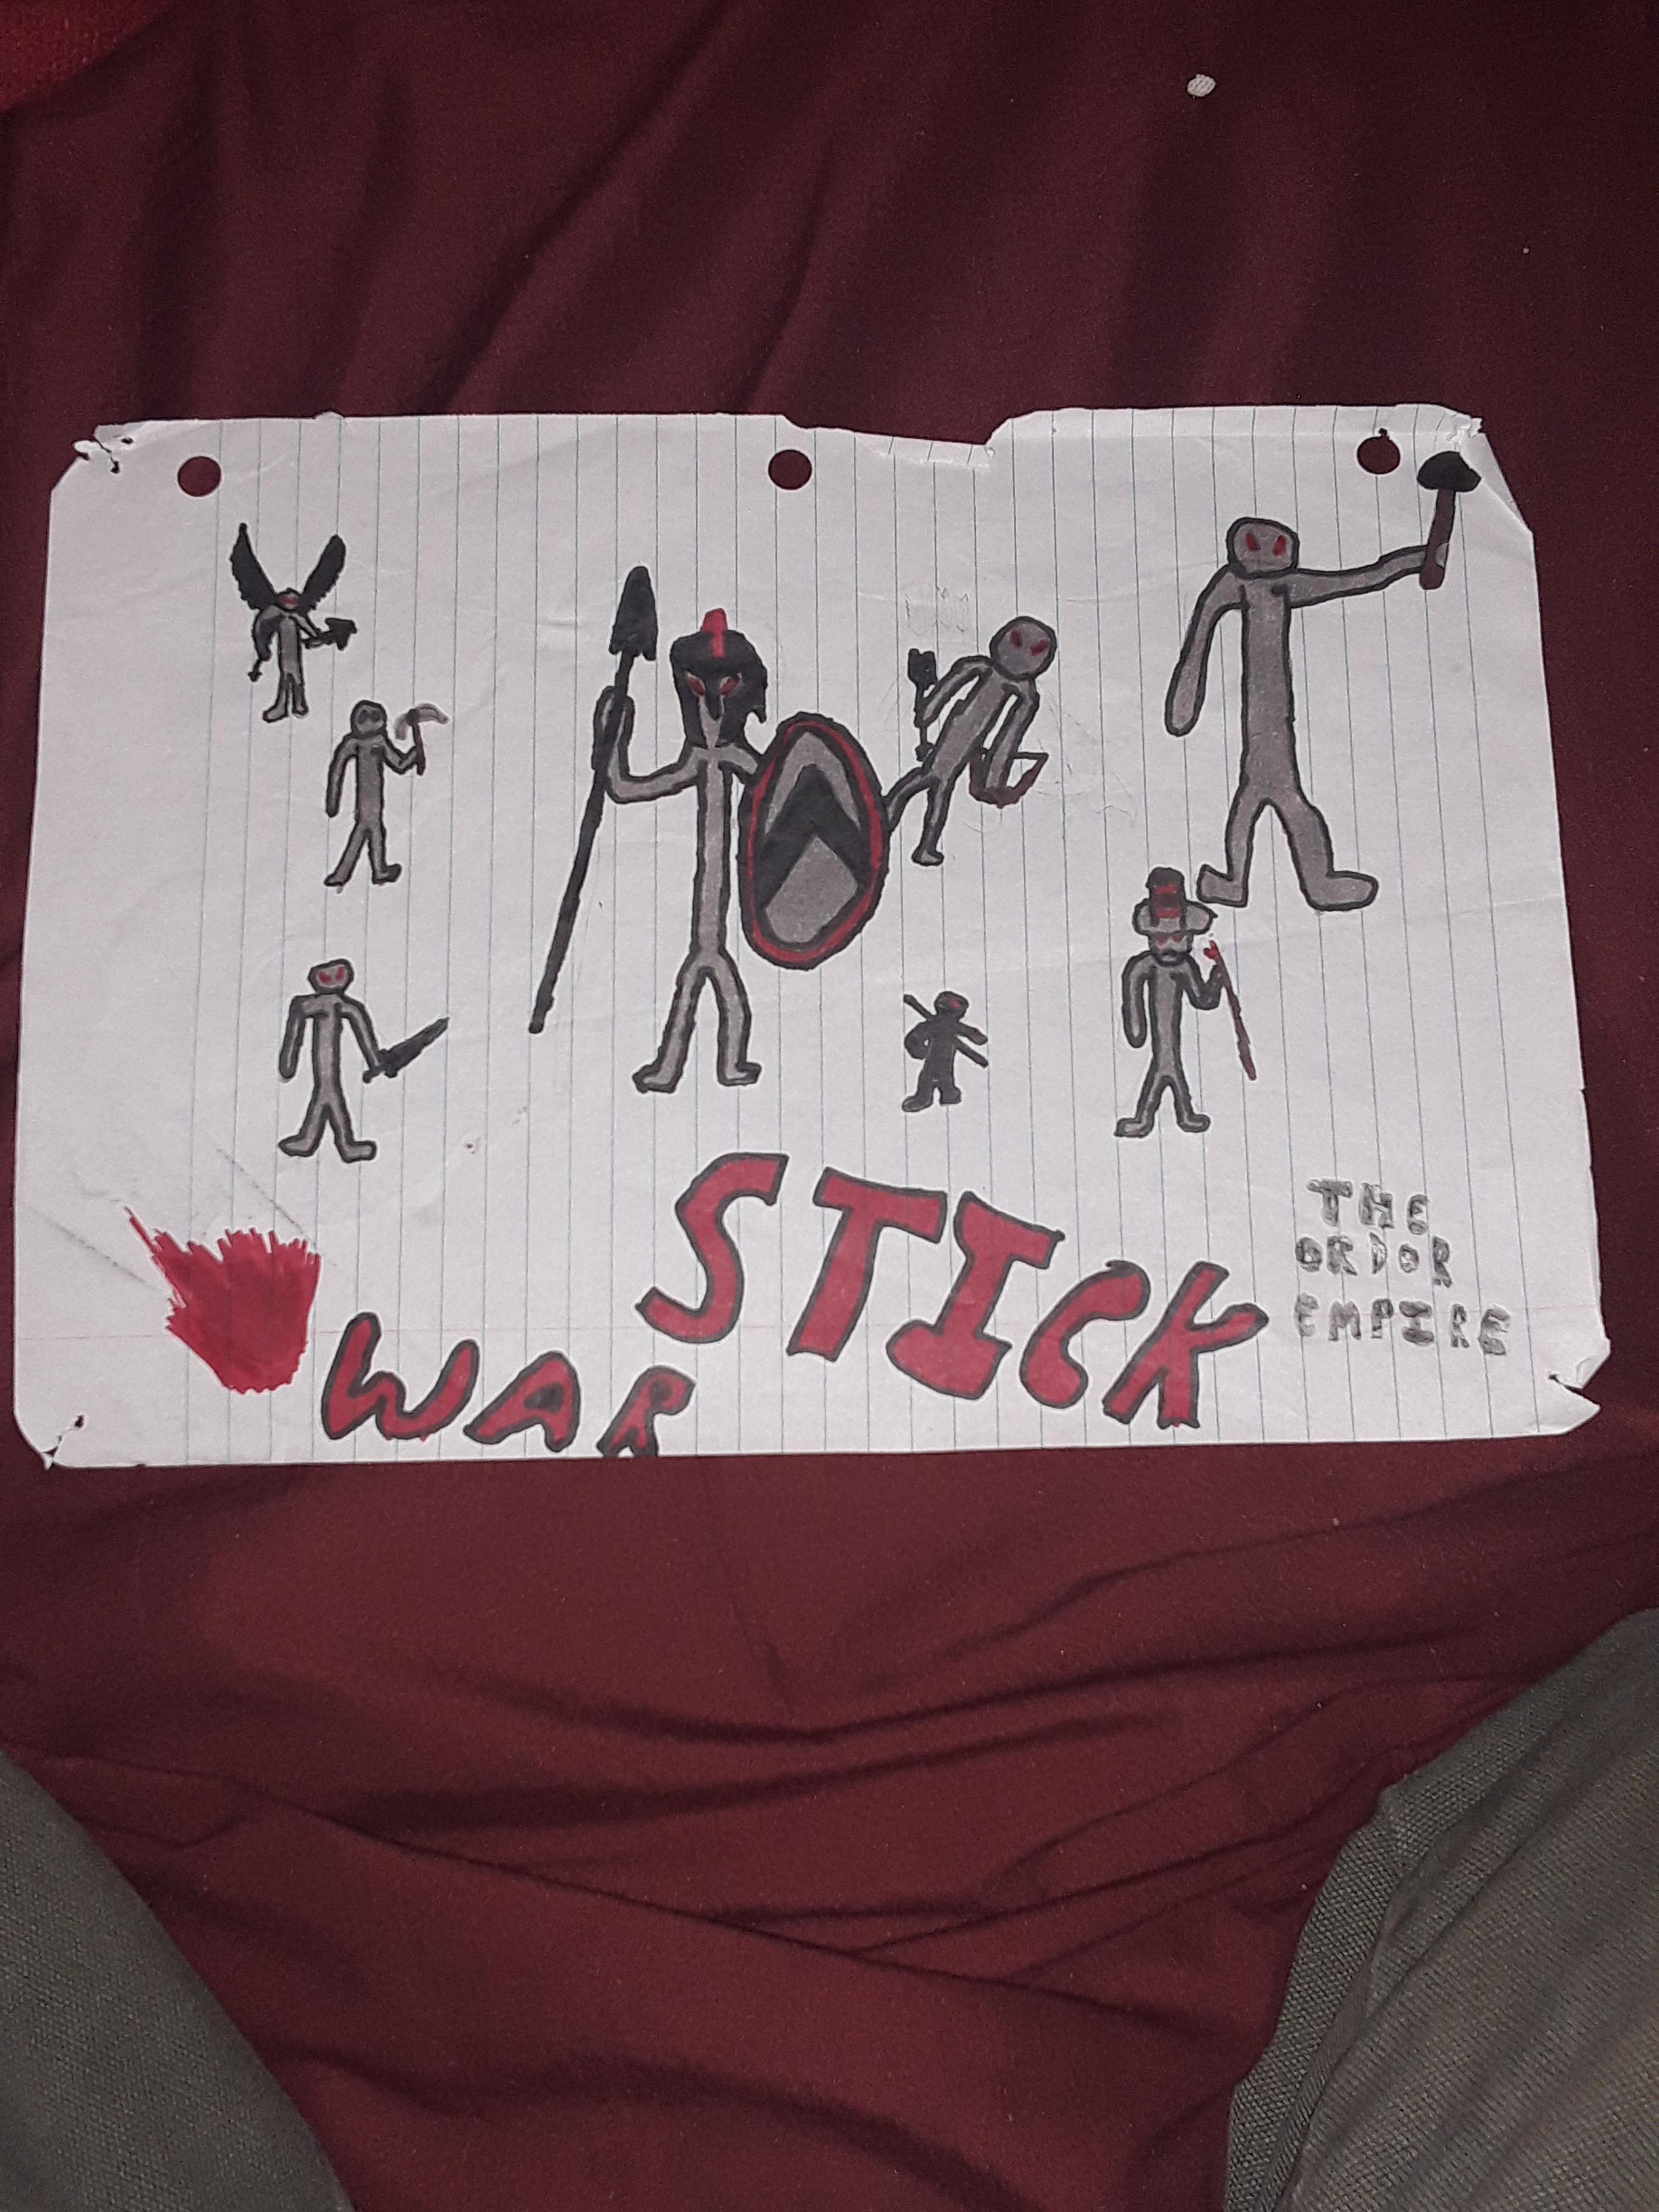 STICK
WAR
THE
ORDOR
EMPIRE